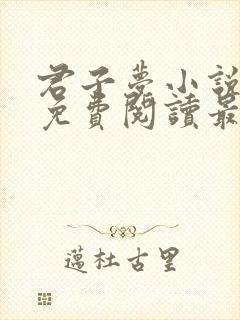 君子夢小說
免費閱讀最
邁杜古里